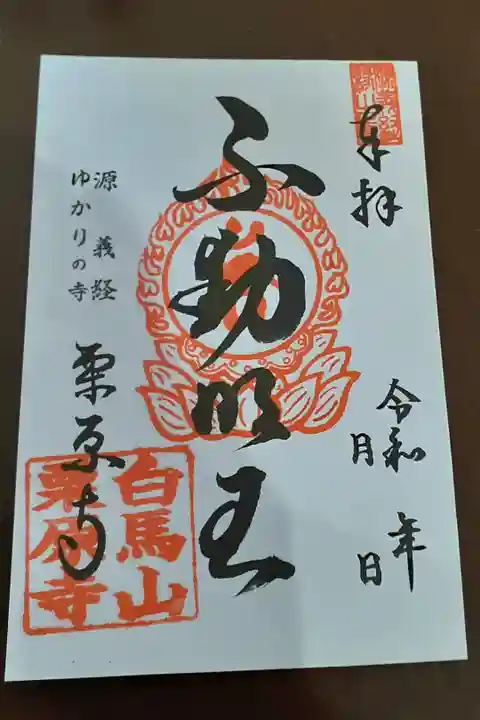 奉拝
令和 年
月 日
不動明王
源義経
ゆかりの寺
栗原寺
白馬山
栗原寺